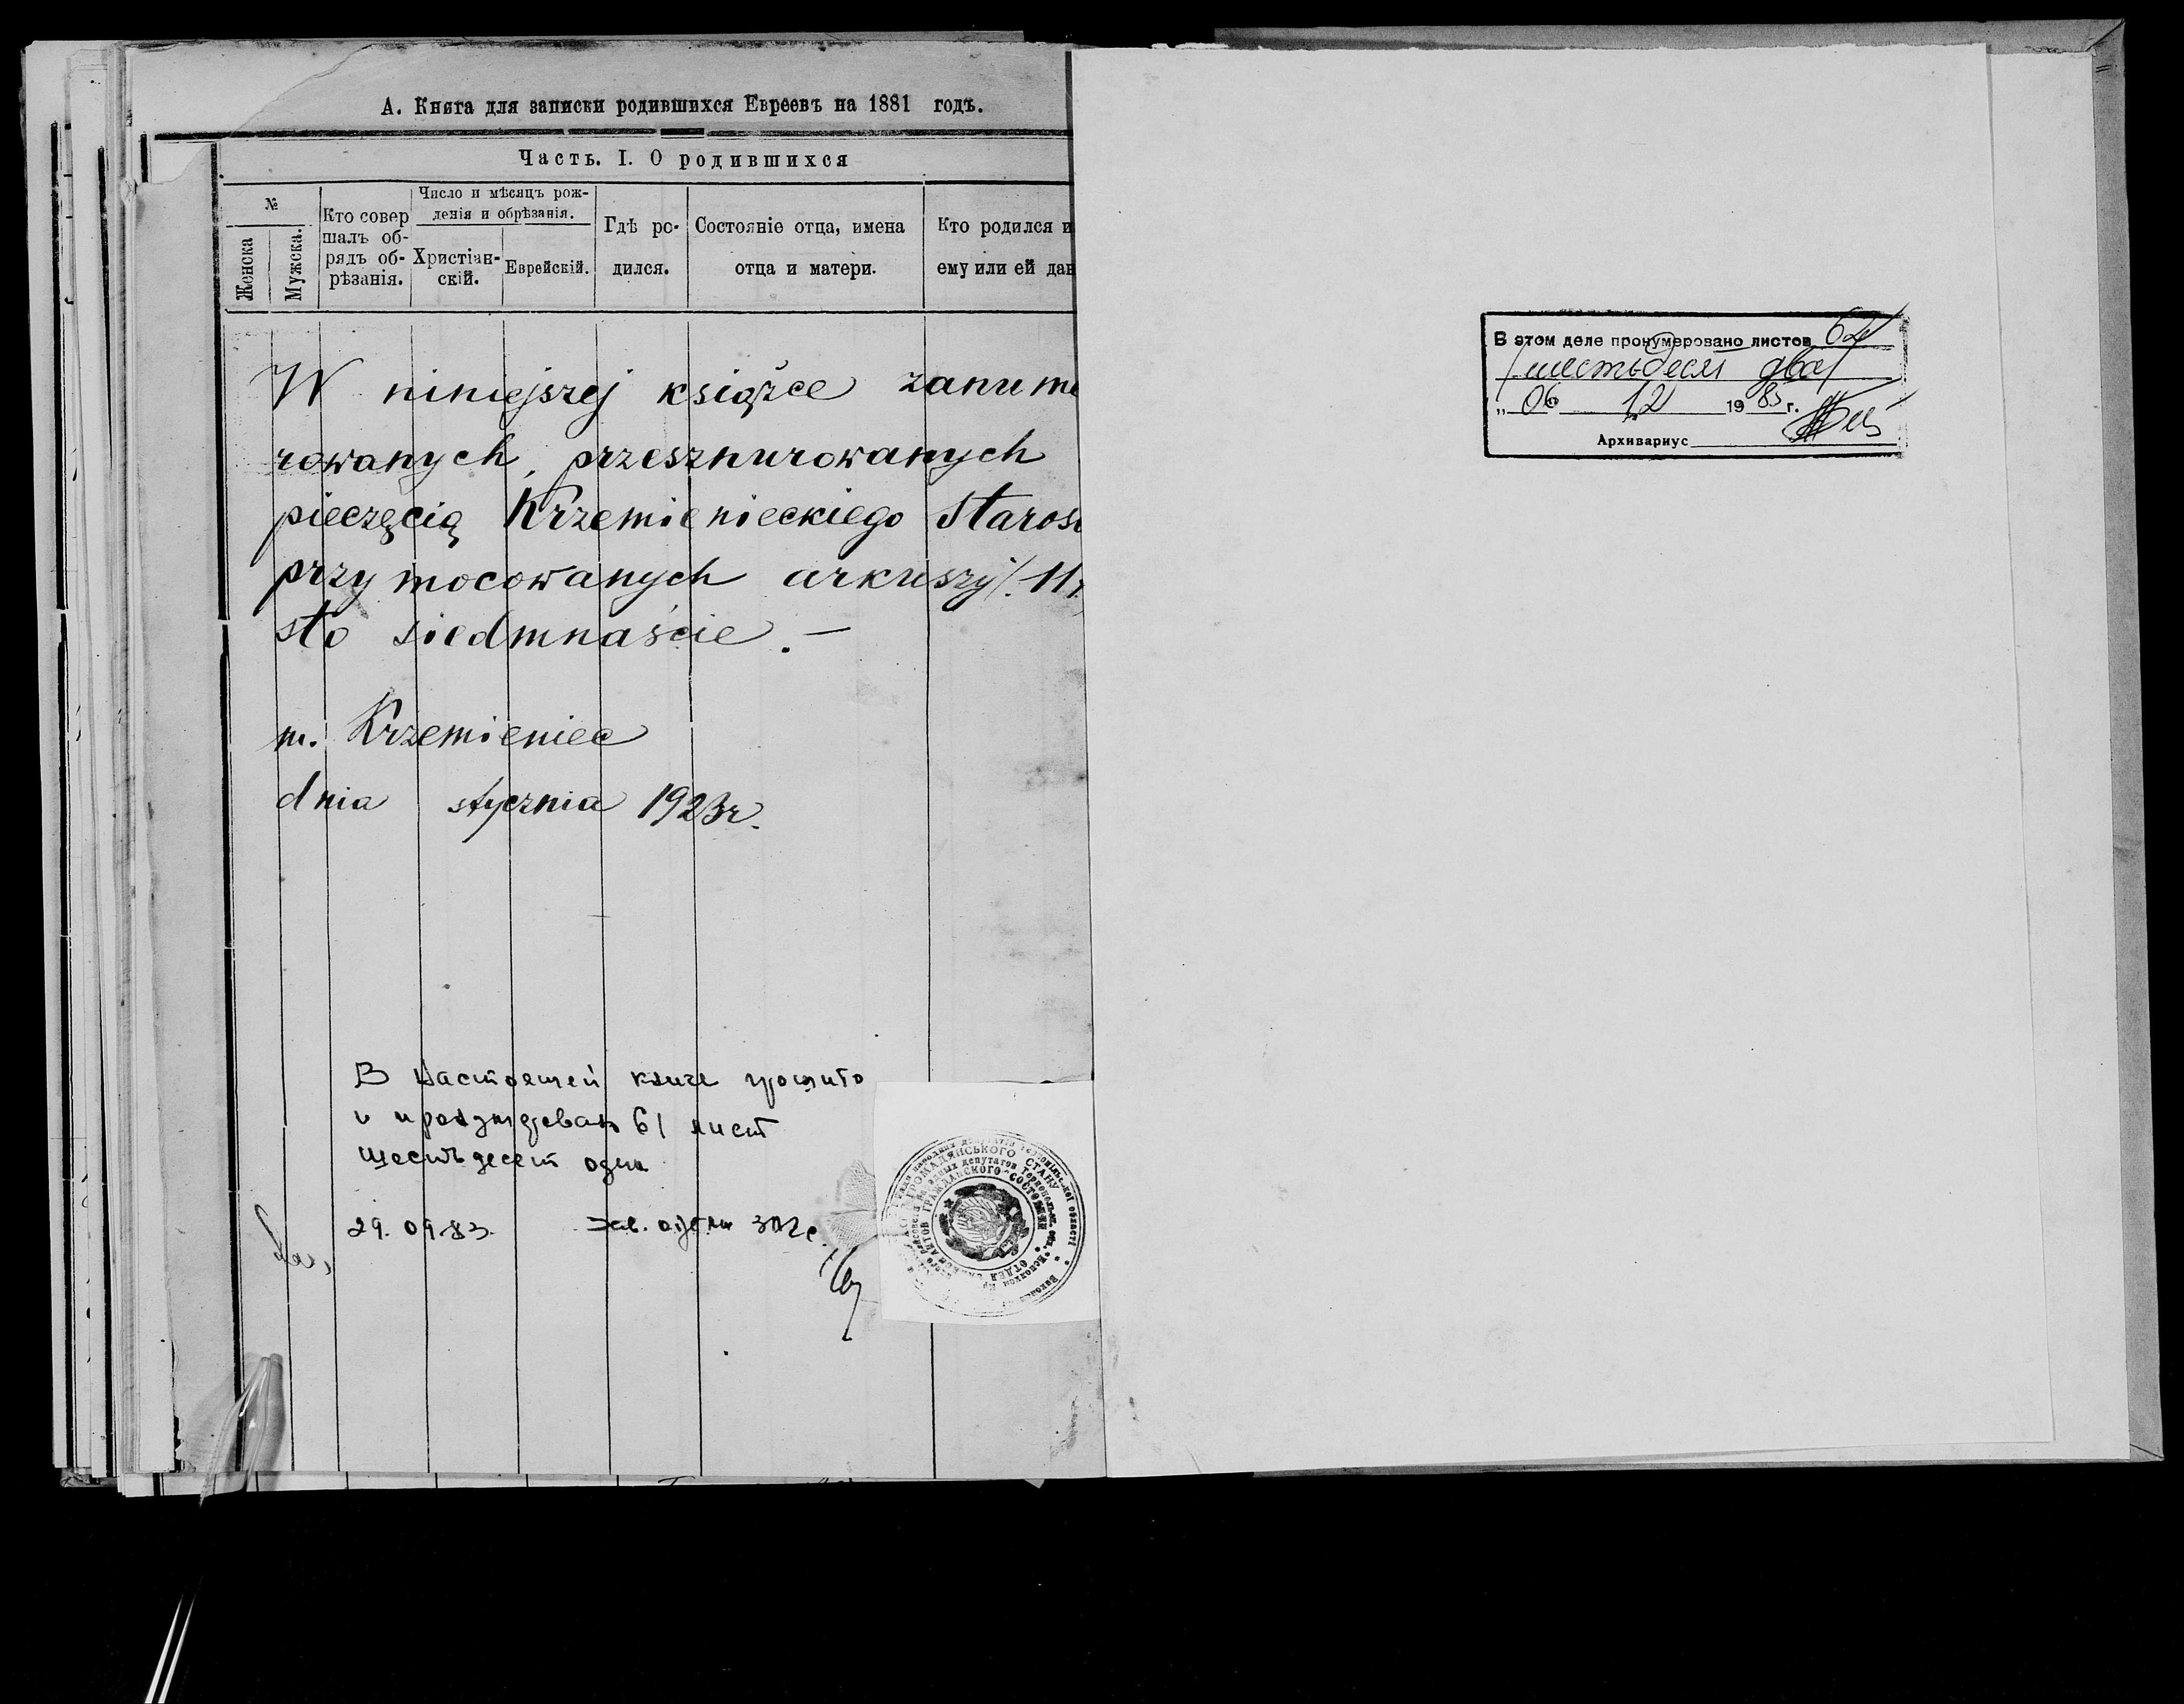 А. Книга для записки родившихся Евреевъ на 1881 годъ.
Часть. I. О родившихся
№
Женска
Мужска.
Кто совер
шалъ об-
рядъ об-
рѣзанія.
Число и мѣсяцъ рож-
денія и обрѣзанія.
Христіан-
скій.
Еврейскій.
Гдѣ ро-
дился.
Состояніе отца, имена
отца и матери.
Кто родился и
ему или ей дан
W niniejszej książce zanume
rowanych, przesznurowanych
pieczęcią Krzemienieckiego Staros
przymocowanych arkuszy /. 117
sto siedmnaście. —
m. Krzemieniec
dnia stycznia 1923r.
В настоящей книге прошито
и пронумеровано 61 лист
шестьдесят один
29.09.83. Зав. отдела ЗАГС
ГРОМАДЯНСЬКОГО СТАНУ
АКТОВ ГРАЖДАНСКОГО СОСТОЯНИЯ
ОТДЕЛ
В этом деле пронумеровано листов 62
/шестьдесят два/
„ 06 " 12 1983 г.
Архивариус